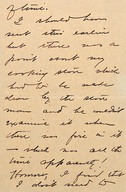 of time.
I should have
sent this earlier
but there was a
point about my
cooking stove which
had to be made
clear by the stove
man and he needed
examine it when
there no fire in it
— which was all the
time apparently!
However, I find that
I don't need to